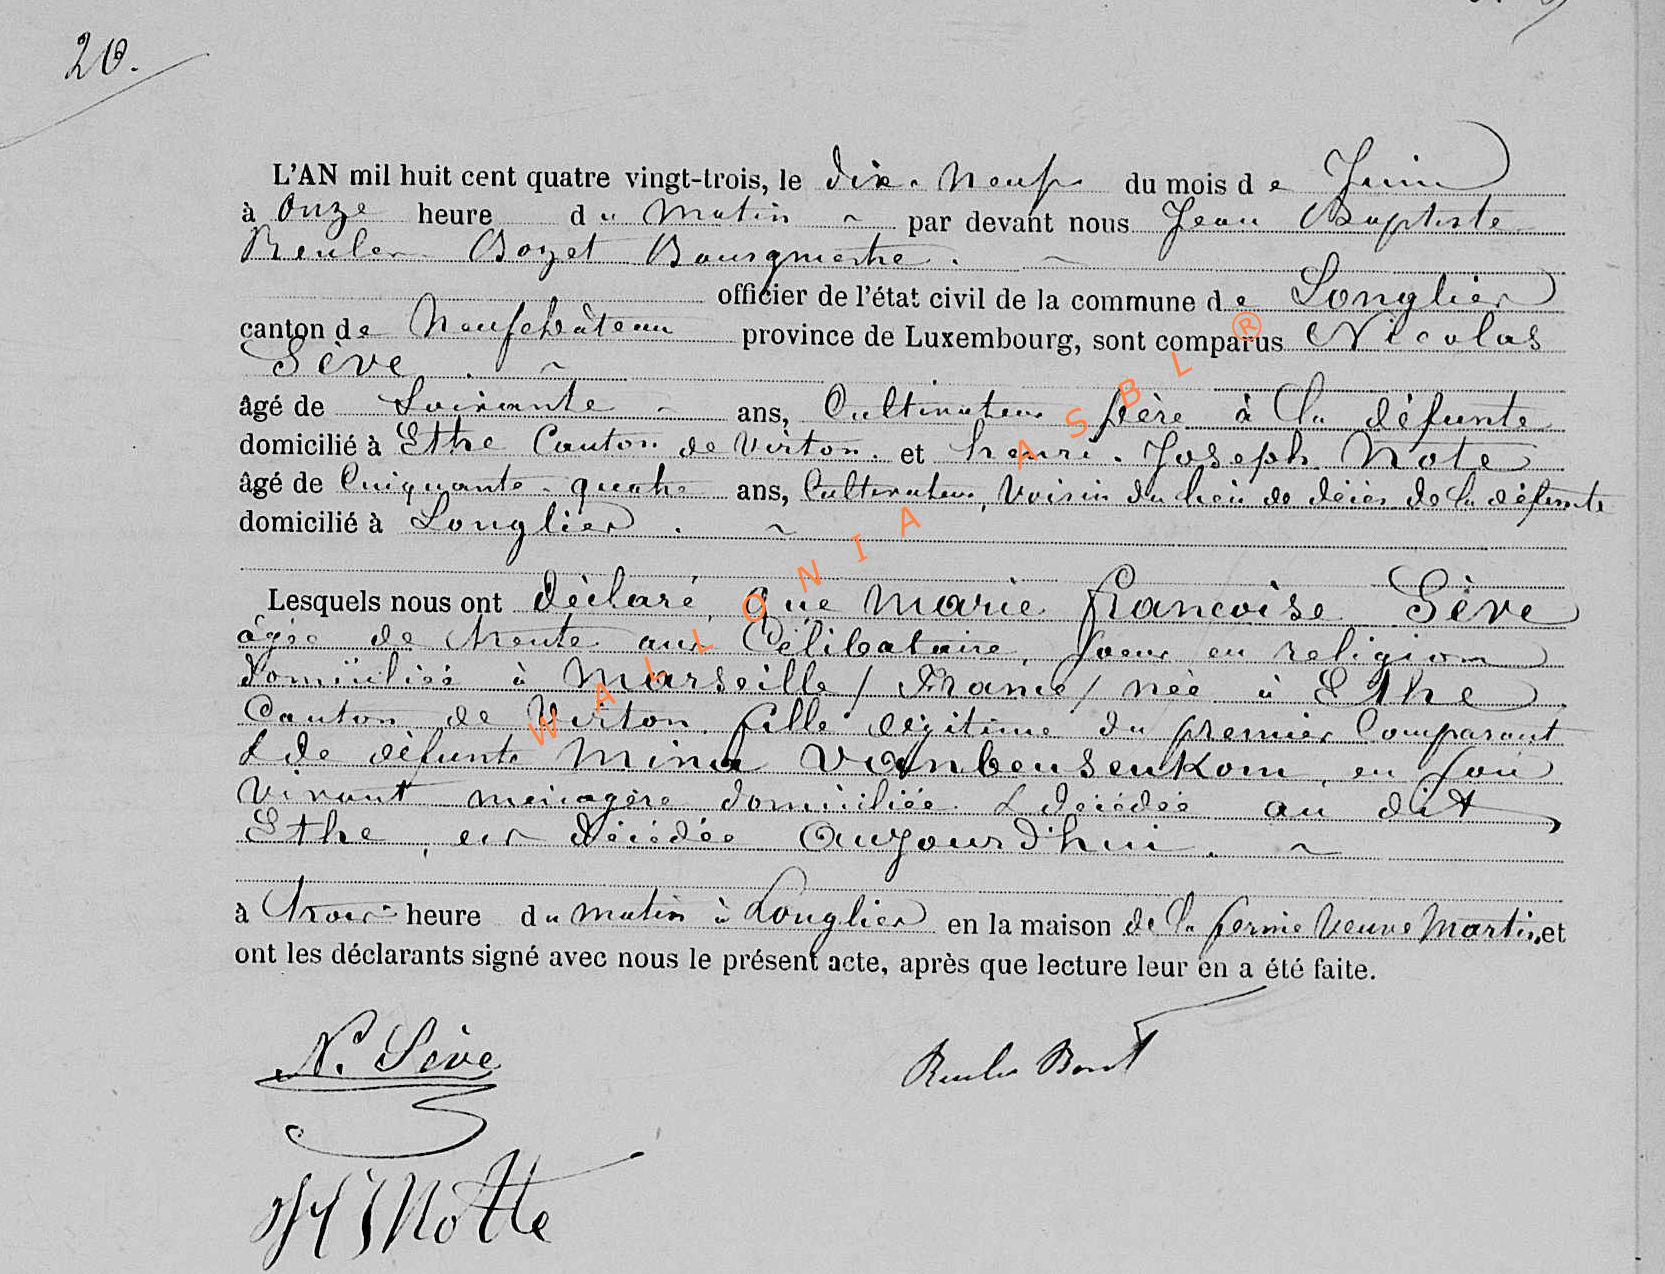 20.
L'AN mil huit cent quatre vingt-trois, le dix-neuf du mois de Juin
à onze heure du matin par devant nous Jean Baptiste
Reuler Bozet Bourgmestre.
officier de l'état civil de la commune de Longlier
canton de Neufchâteau province de Luxembourg, sont comparus Nicolas
Sève.
âgé de Soixante ans, Cultivateur père à la défunte
domicilié à Ethe Canton de Virton. et henri-Joseph Note
âgé de Cinquante-quatre ans, Cultivateur, Voisin du lieu de décès de la défunte
domicilié à Longlier.
Lesquels nous ont déclaré que Marie françoise Sève
âgée de trente ans Célibataire, soeur en religion
domiciliée à Marseille / France / née à Ethe
Canton de Virton, fille légitime du premier Comparant
& de défunte Mina Vanbeusenkom, en son
vivant ménagère domiciliée & décédée au dit
Ethe, est décédée aujourd'hui.
à trois heure du matin à Longlier en la maison de la ferme Veuve Martin, et
ont les déclarants signé avec nous le présent acte, après que lecture leur en a été faite.
N. Sève
Reuler Bozet
HJ Notte
WALLONIA ASBL ®